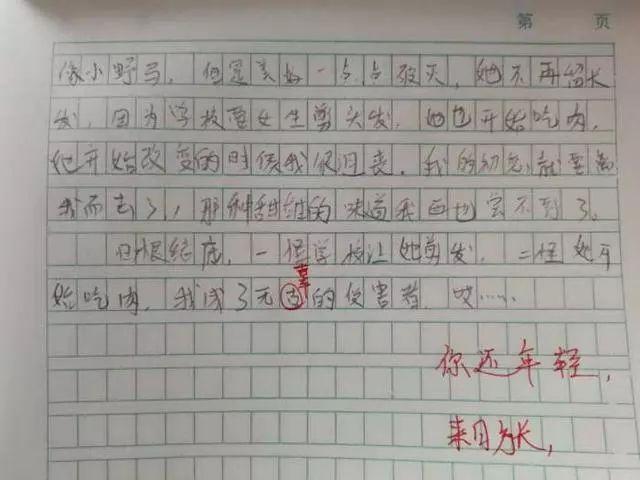 第 页
像小野马。但是美好一点点破灭,她不再留长
发,因为学校要女生剪头发。她也开始吃肉,
她开始改变的时候我很沮丧。我的初恋就要离
我而去了,那种甜甜的味道我再也尝不到了。
归根结底,一怪学校让她剪发,二怪她开
辜
始吃肉。我成了无古的伤害者。哎……
你还年轻,
来日方长,